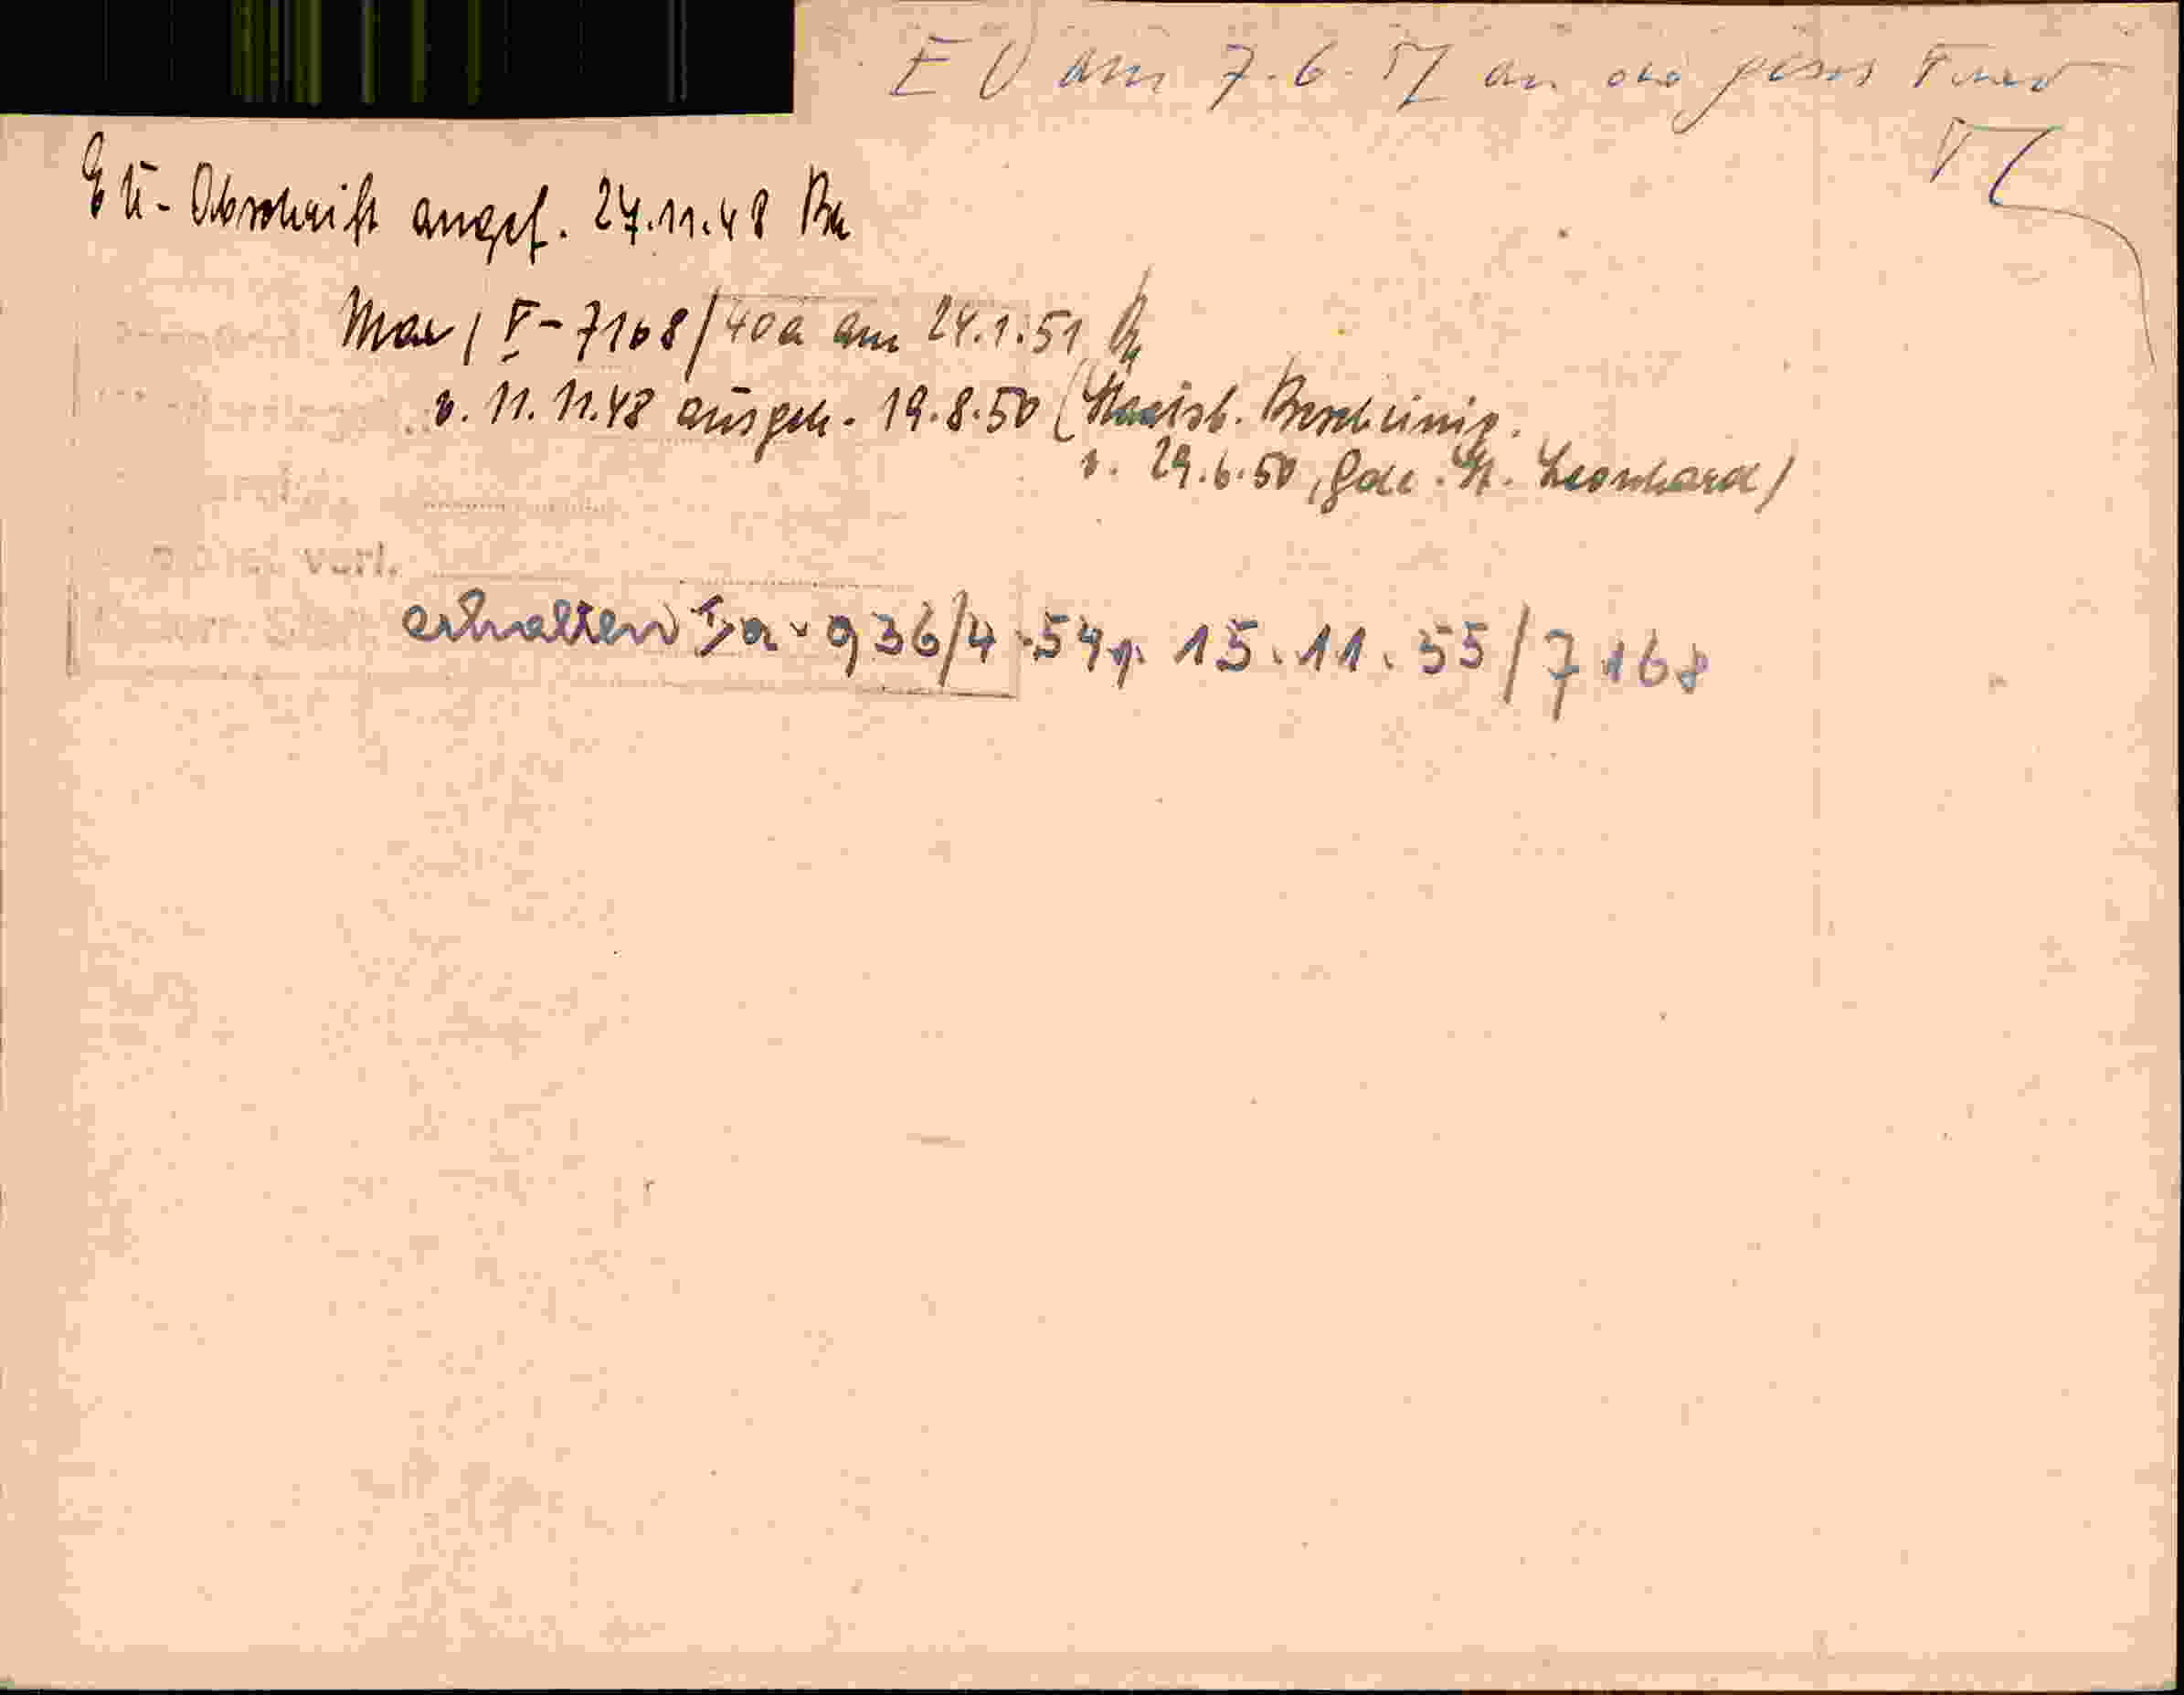 EU am 7.6.57 an die
EU-Abschrift angef. 27.11.48
Max / V-7168/40a am 24.1.51
v. 11.11.48 ausgeh. 19.8.50 (Staatsb. Bescheinig.
v. 29.6.50, Gde. St. Leonhard)
Verl.
erhalten Ia-936/4.54 15.11.55/7168